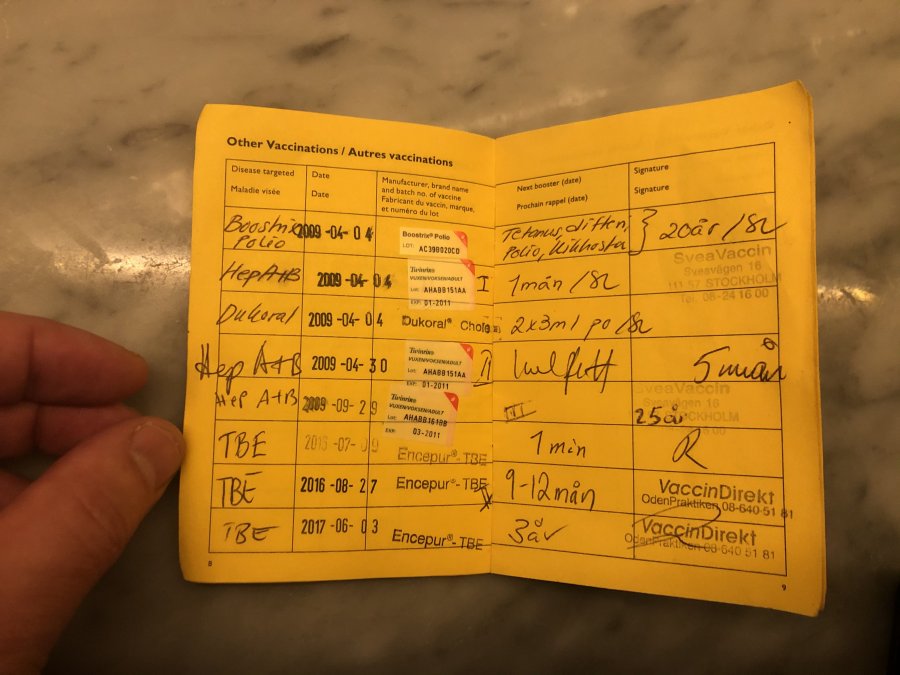 Other Vaccinations / Autres vaccinations
Disease targeted
Maladie visée
Date
Date
Manufacturer, brand name
and batch no. of vaccine
Fabricant du vaccin, marque,
et numéro du lot
Next booster (date)
Prochain rappel (date)
Signature
Signature
Boostrix
Polio
2009 -04- 0 4
Boostrix® Polio
LOT: AC39B020CD
Tetanus, difteri,
Polio, Kikhosta
20år / SL
Hep A+B
2009 -04- 0 4
Twinrix
VUXEN/VOKSEN/ADULT
Lot: AHABB151AA
EXP: 01-2011
I
1 mån / SL
SveaVaccin
Sveavägen 16
111 57 STOCKHOLM
Tel. 08-24 16 00
Dukoral
2009 -04- 0 4
Dukoral® Chole
2x3ml po / SL
Hep A+B
2009 -04- 3 0
Twinrix
VUXEN/VOKSEN/ADULT
Lot: AHABB151AA
EXP: 01-2011
II
5 mån
Hep A+B
2009 -09- 2 9
Twinrix
VUXEN/VOKSEN/ADULT
Lot: AHABB161BB
EXP: 03-2011
III
SveaVaccin
Sveavägen 16
STOCKHOLM
25år
TBE
2016 -07- 0 9
Encepur®-TBE
1 mån
TBE
2016 -08- 2 7
Encepur®-TBE
9-12 mån
VaccinDirekt
OdenPraktiken 08-640 51 81
TBE
2017 -06- 0 3
Encepur®-TBE
3 år
VaccinDirekt
OdenPraktiken 08-640 51 81
8
9